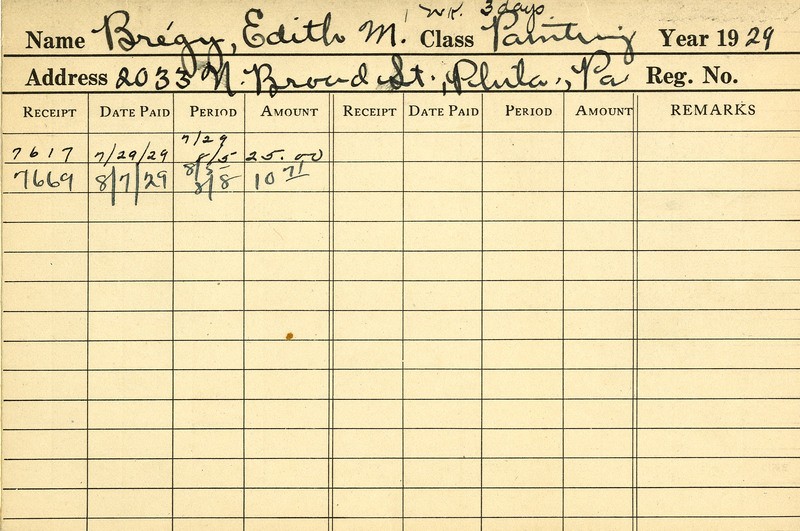 1 wk. 3 days
Name Brégy, Edith M. Class Painting Year 1929
Address 2033 N. Broad St., Phila., Pa Reg. No.
RECEIPT DATE PAID PERIOD AMOUNT RECEIPT DATE PAID PERIOD AMOUNT REMARKS
7/29
7617 7/29/29 8/5 25.00
7669 8/7/29 8/5 8/8 10 71